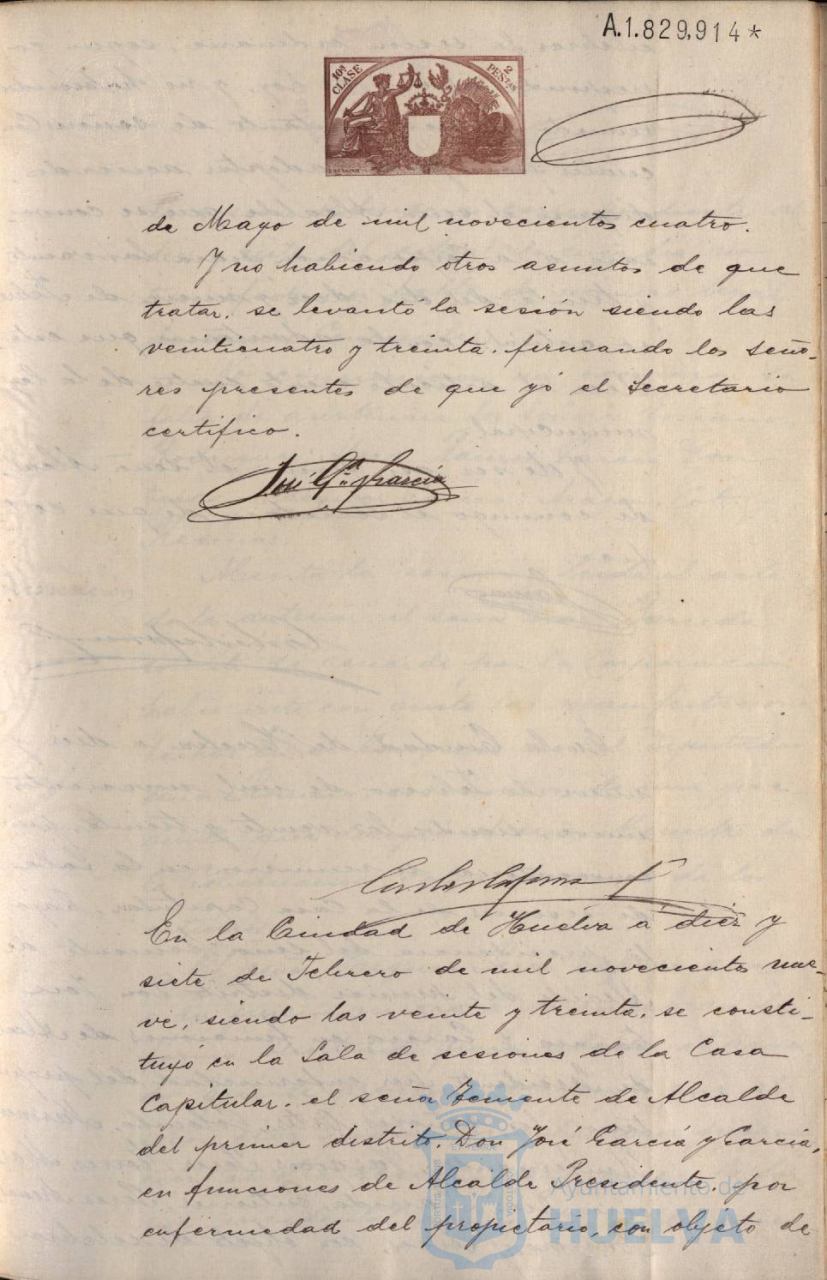 A.1.829,914*
10ª CLASE
2 PESETAS
de Mayo de mil novecientos cuatro.
Y no habiendo otros asuntos de que
tratar, se levantó la sesión siendo las
veinticuatro y treinta, firmando los seño-
res presentes de que yó el Secretario
certifico.
José Gª García
En la Ciudad de Huelva a diez y
siete de Febrero de mil novecientos nue-
ve, siendo las veinte y treinta, se consti-
tuyó en la Sala de sesiones de la Casa
Capitular, el señor Teniente de Alcalde
del primer distrito, Don José García y García,
en funciones de Alcalde Presidente, por
enfermedad del propietario, con objeto de
Ayuntamiento de
HUELVA